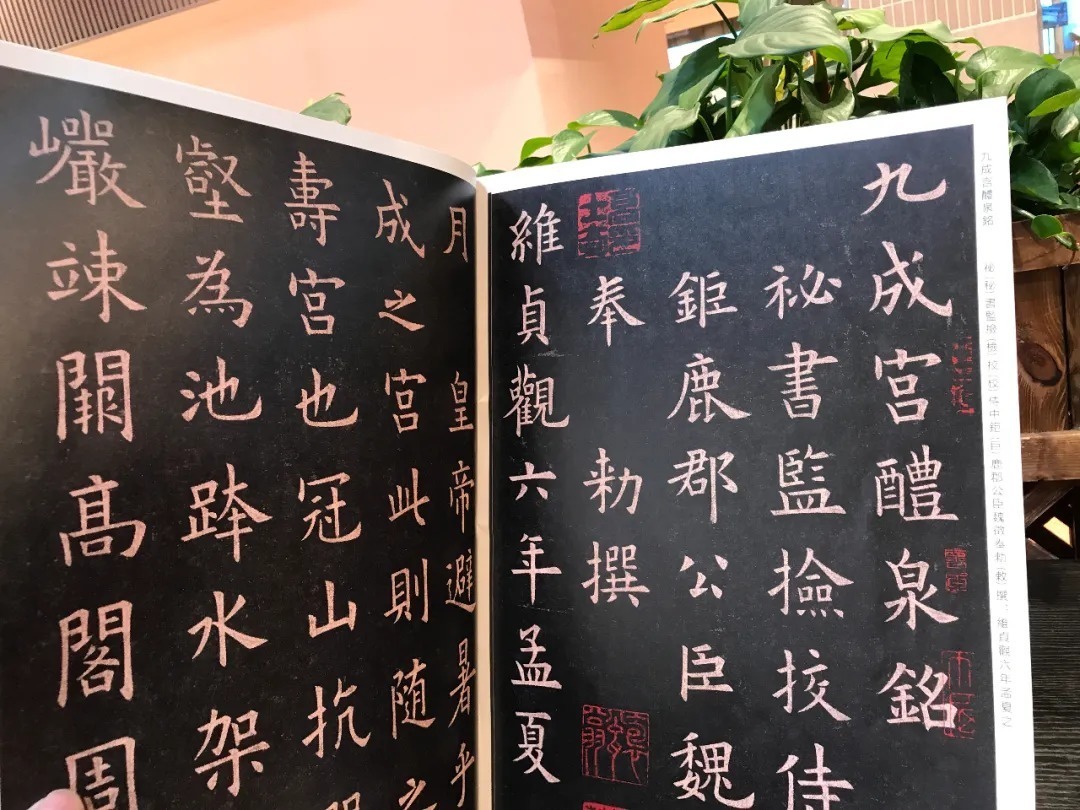 九成宮醴泉銘　祕（秘）書監撿（檢）挍（校）侍中鉅（巨）鹿郡公臣魏徵奉勑（敕）撰。維貞觀六年孟夏之
九成宮醴泉銘
祕書監撿挍侍
鉅鹿郡公臣魏
奉　勑撰
維貞觀六年孟夏
月　皇帝避暑乎
成之宮此則隨之
壽宮也冠山抗
壑為池跨水架
巗竦闕高閣周